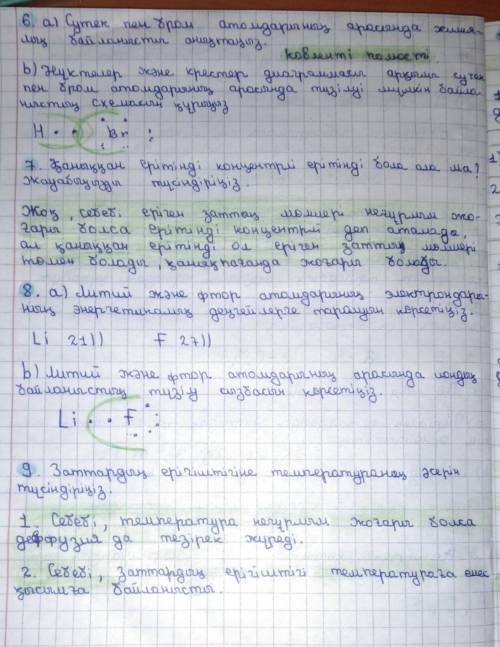 6. a) Сутек пен бром атомдарының арасында химия-
лық байланысты анықтаңыз.
ковленті полюсті
b) Нүктелер және крестер диаграммасы арқылы сутек
пен бром атомдарының арасында түзілуі мүмкін байла-
ныстың схемасын құрыңыз
H Br
7. Қанаққан ерітінді концентрлі ерітінді бола ала ма?
Жауабыңызды түсіндіріңіз.
Жоқ, себебі еріген заттың мөлшері неғұрлым жо-
ғары болса ерітінді концентрлі деп аталады,
ал қанаққан ерітінді ол еріген заттың мөлшері
төмен болады, қанықпағанда жоғары болады.
8. a) Литий және фтор атомдарының электрондары-
ның энергетикалық деңгейлерге таралуын көрсетіңіз.
Li 21)) F 27))
b) Литий және фтор атомдарының арасында иондық
байланыстың түзілу сызбасын көрсетіңіз.
Li F
9. Заттардың ерігіштігіне температураның әсерін
түсіндіріңіз.
1. Себебі, температура неғұрлым жоғары болса
деффузия да тезірек жүреді.
2. Себебі, заттардың ерігіштігі температураға емес
қысымға байланысты.